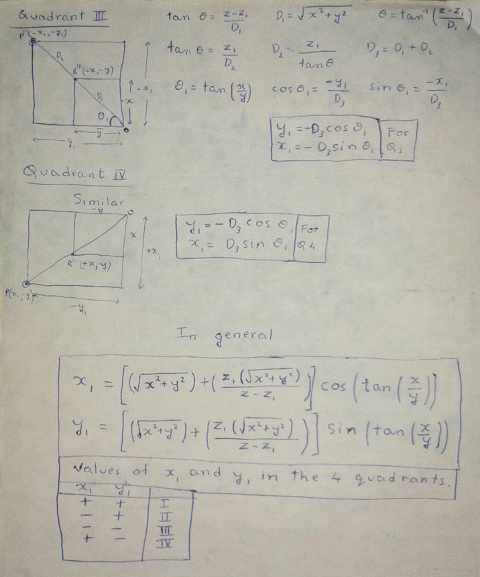 Quadrant III
P'''(-x₁,-y₁)
D₂
R'''(-x,-y)
D₁
θ₁
-x
-x₁
y
y₁
tan θ = z-z₁/D₁   D₁ = √x²+y²   θ = tan⁻¹(z-z₁/D₁)
tan θ = z₁/D₂   D₂ = z₁/tanθ   D₃ = D₁ + D₂
θ₁ = tan(x/y)   cosθ₁ = -y₁/D₃   sin θ₁ = -x₁/D₃
y₁ = -D₃ cos θ₁
x₁ = -D₃ sin θ₁
For
Q₃
Quadrant IV
Similar
-y
x
+x₁
R''''(+x,-y)
P(x₁,-y)
-y₁
y₁ = - D₃ cos θ₁
x₁ = D₃ sin θ₁
For
Q₄
In general
x₁ = [(√x²+y²) + (z₁(√x²+y²)/z-z₁)] cos(tan(x/y))
y₁ = [(√x²+y²) + (z₁(√x²+y²)/z-z₁)] sin(tan(x/y))
Values of x₁ and y₁ in the 4 quadrants.
x₁ y₁
+ + I
- + II
- - III
+ - IV